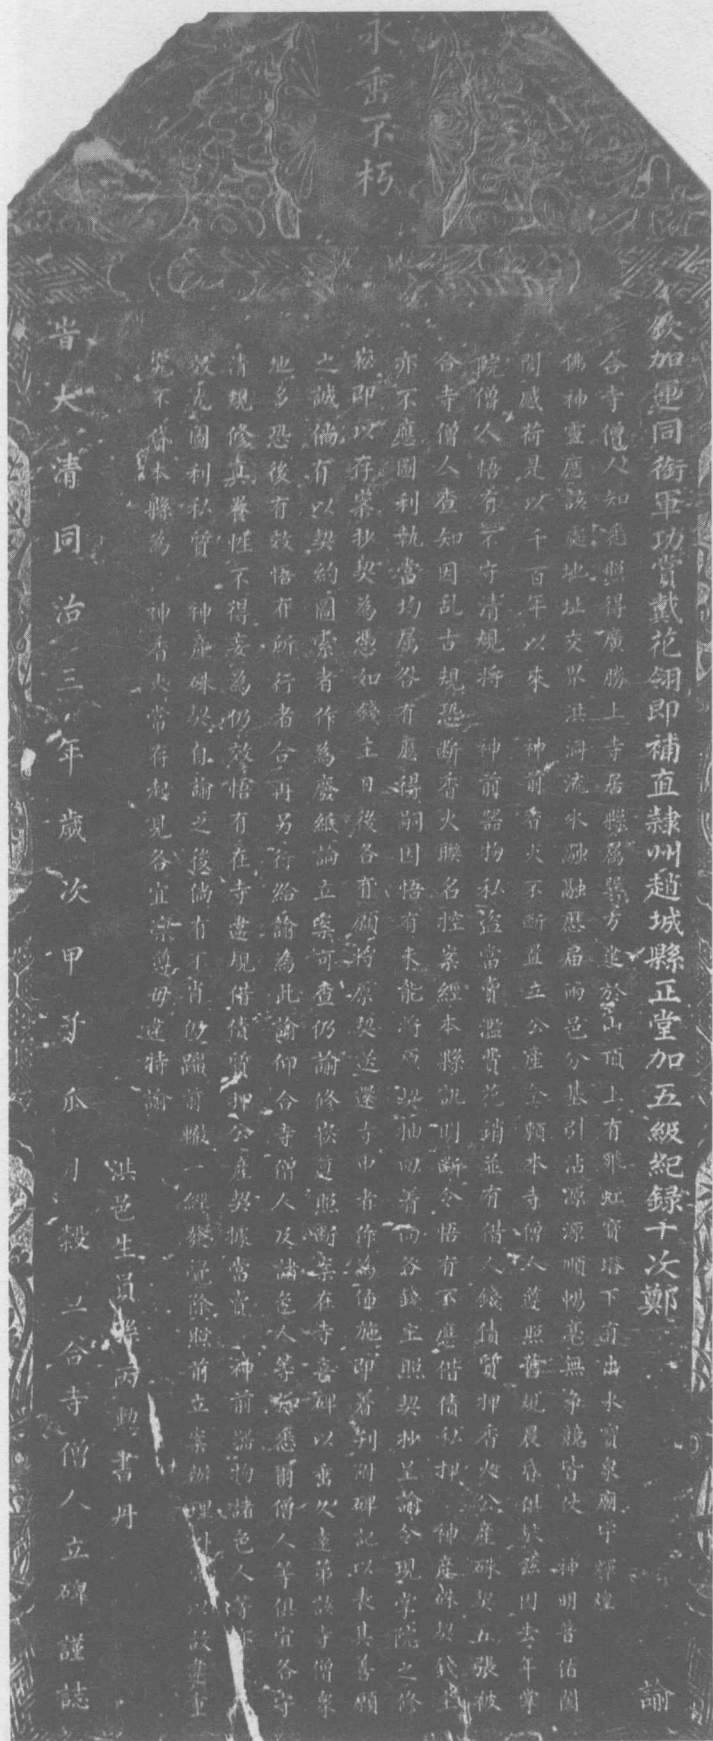 永垂不朽
欽加運同銜軍功賞戴花翎即補直隸州趙城縣正堂加五級紀錄十次鄭 諭
合寺僧人知悉照得廣勝上寺居縣屬巽方建於山頂上有飛虹寶塔下有出水寶泉廟宇輝煌
佛神靈應該處地址交界洪洞流水融融歷屆兩邑分基引沾源源順暢毫無爭競皆仗 神明普佑闔
閭感荷是以千百年以來 神前香火不斷置立公產全賴本寺僧人遵照舊規晨昏供奉茲因去年掌
院僧人悟有不守清規將 神前器物私盜當賣濫費花銷並有借人錢債質押香火公產硃契五張被
合寺僧人查知因亂古規恐斷香火聯名控案經本縣訊明斷令悟有不應借債私押 神產硃契錢主
亦不應圖利執當均屬各有應得嗣因悟有未能將 契抽回着向各錢主照契抄呈諭令現掌院之修
崧即以存案抄契為憑如錢主日後各有願將原契送還寺中者作為佈施即着列附碑記以表其善願
之誠倘有以契約圖索者作為廢紙論立案可查仍諭修崧遵照斷案在寺竪碑以垂久遠第該寺僧衆
地多恐後有效悟有所行者合再另行給諭為此諭仰合寺僧人及諸色人等知悉爾僧人等俱宜各守
清規修真養性不得妄為仍效悟有在寺盡規借債質押公產契據當賣 神前器物諸色人等
效尤圖利私質 神產硃契自諭之後倘有不肖仍蹈前轍一經發覺除照前立案辦理
究不貸本縣為 神香火常存起見各宜凜遵毋違特諭
洪邑生員 丙勳書丹
旹大清同治三年歲次甲子瓜月穀旦合寺僧人立碑謹誌